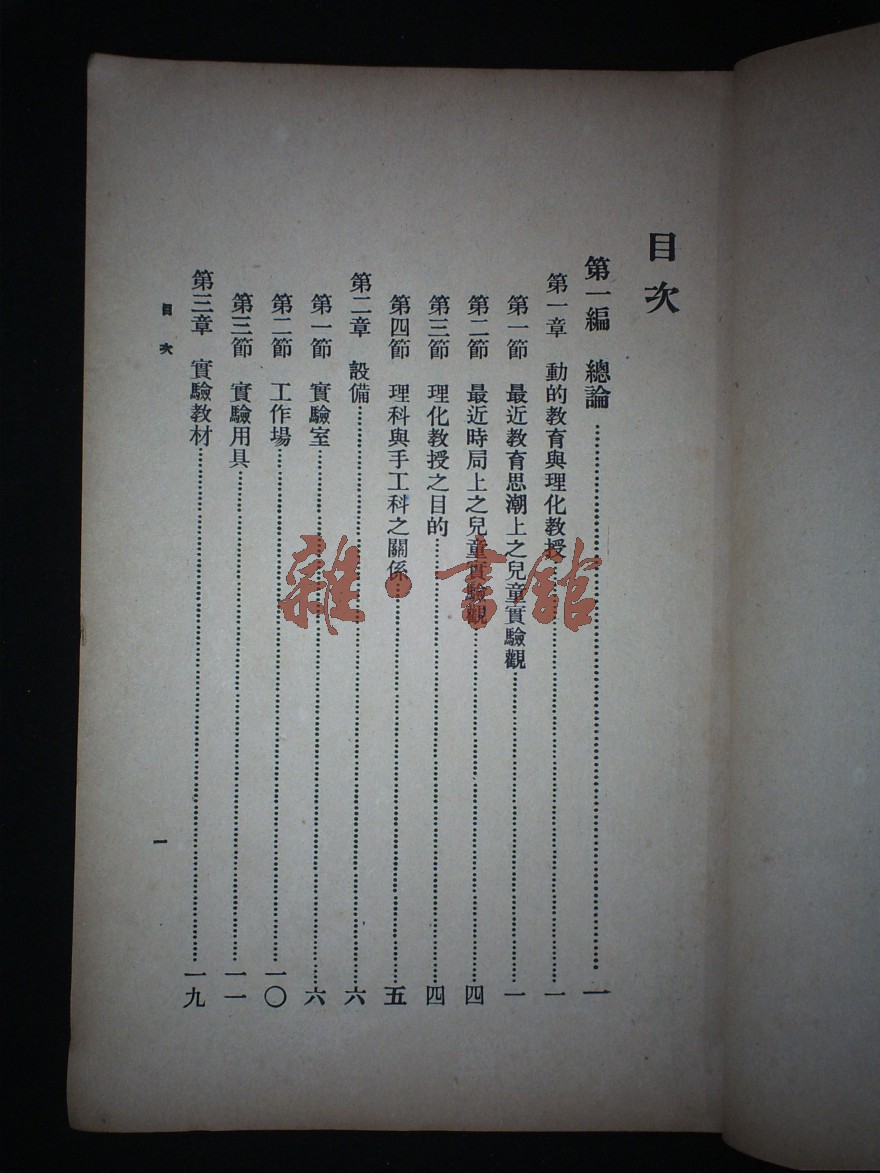 目次
第一編 總論……一
第一章 動的教育與理化教授……一
第一節 最近教育思潮上之兒童實驗觀……一
第二節 最近時局上之兒童實驗觀……四
第三節 理化教授之目的……四
第四節 理科與手工科之關係……五
第二章 設備……六
第一節 實驗室……六
第二節 工作場……一〇
第三節 實驗用具……一一
第三章 實驗教材……一九
目次
一
雜·書館